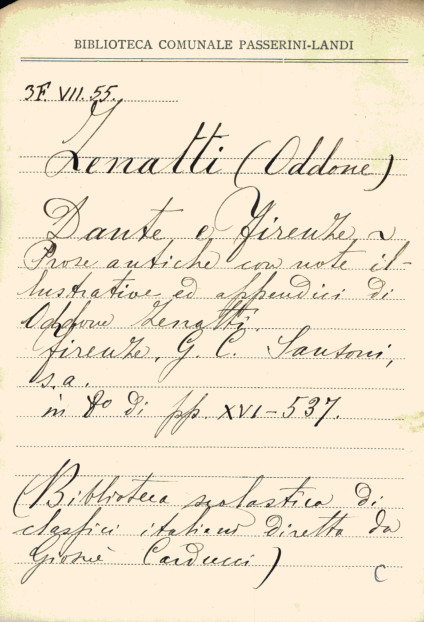 BIBLIOTECA COMUNALE PASSERINI-LANDI
3F. VII. 55.
Zenatti (Oddone)
Dante e Firenze ~
Prose antiche con note il-
lustrative ed appendici di
Oddone Zenatti.
Firenze, G. C. Sansoni,
s.a.
in 8º di pp. XVI-537.
(Biblioteca scolastica di
classici italiani diretta da
Giosuè Carducci)
C